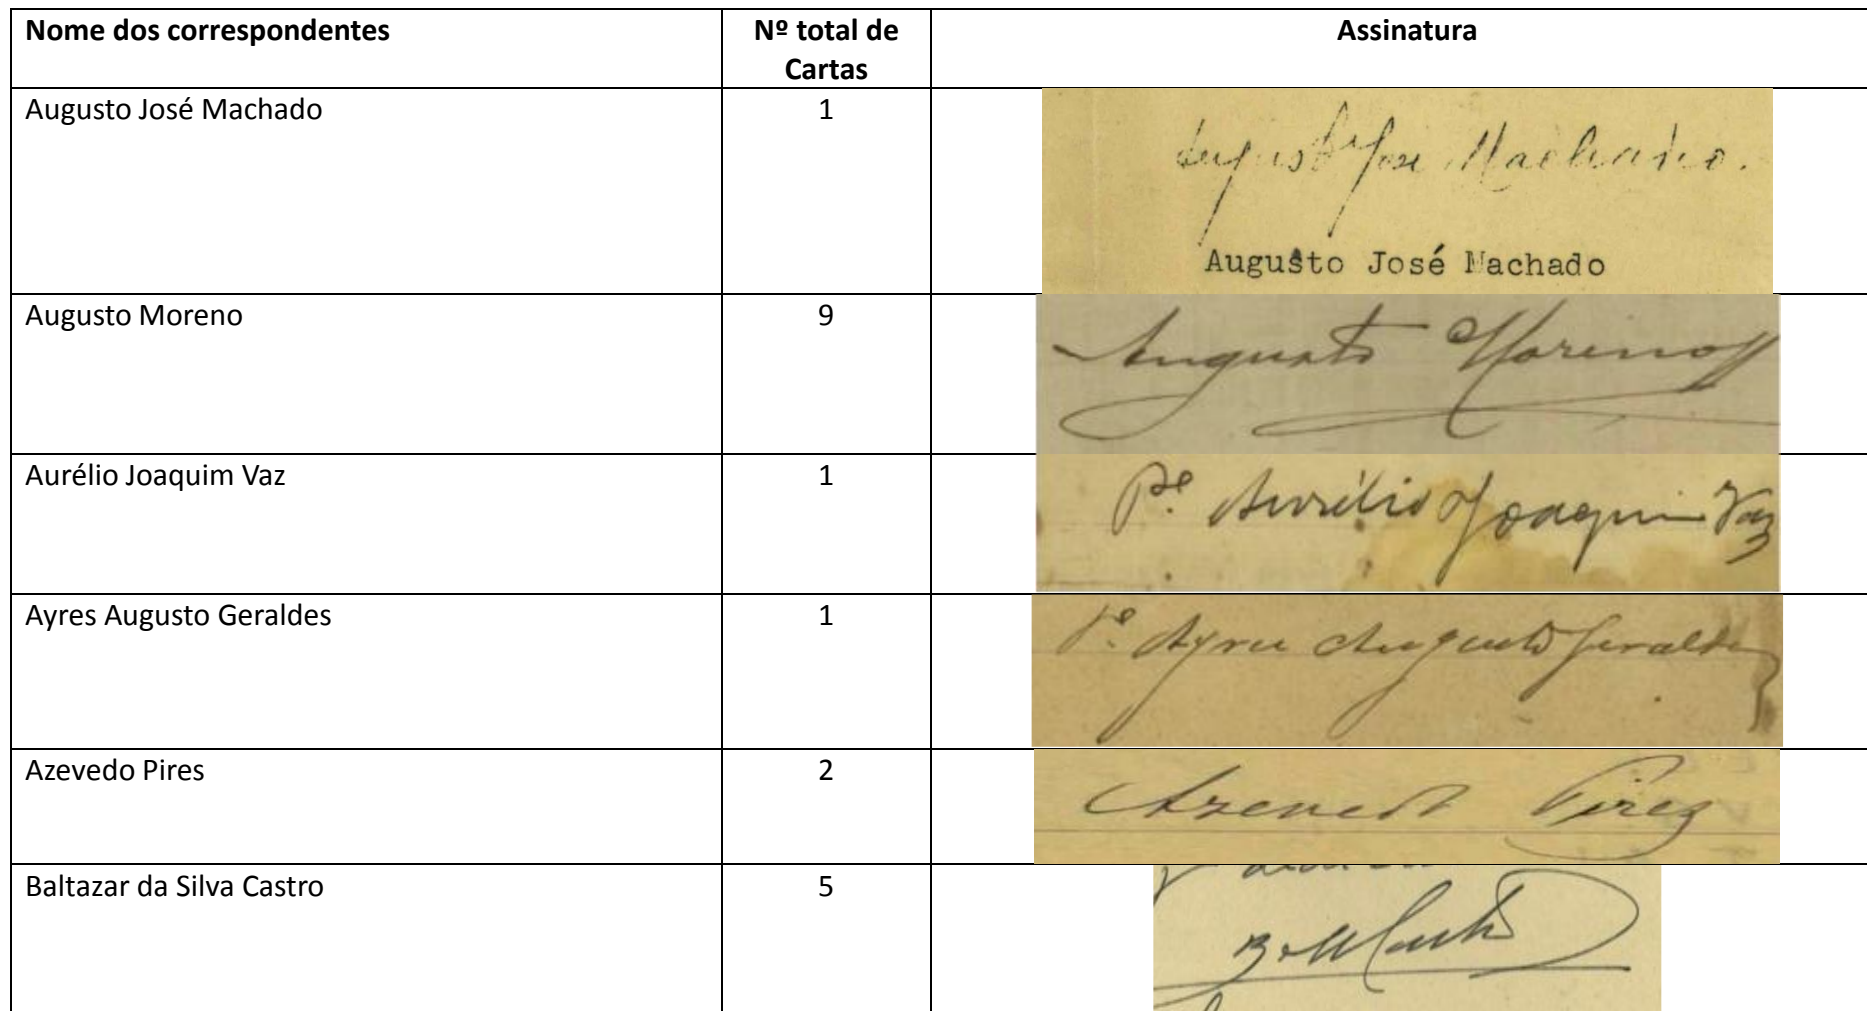 Nome dos correspondentes
Nº total de
Cartas
Assinatura
Augusto José Machado
1
Augusto José Machado.
Augusto José Machado
Augusto Moreno
9
Augusto Moreno
Aurélio Joaquim Vaz
1
Pe. Aurélio Joaquim Vaz
Ayres Augusto Geraldes
1
Pe. Ayres Augusto Geraldes
Azevedo Pires
2
Azevedo Pires
Baltazar da Silva Castro
5